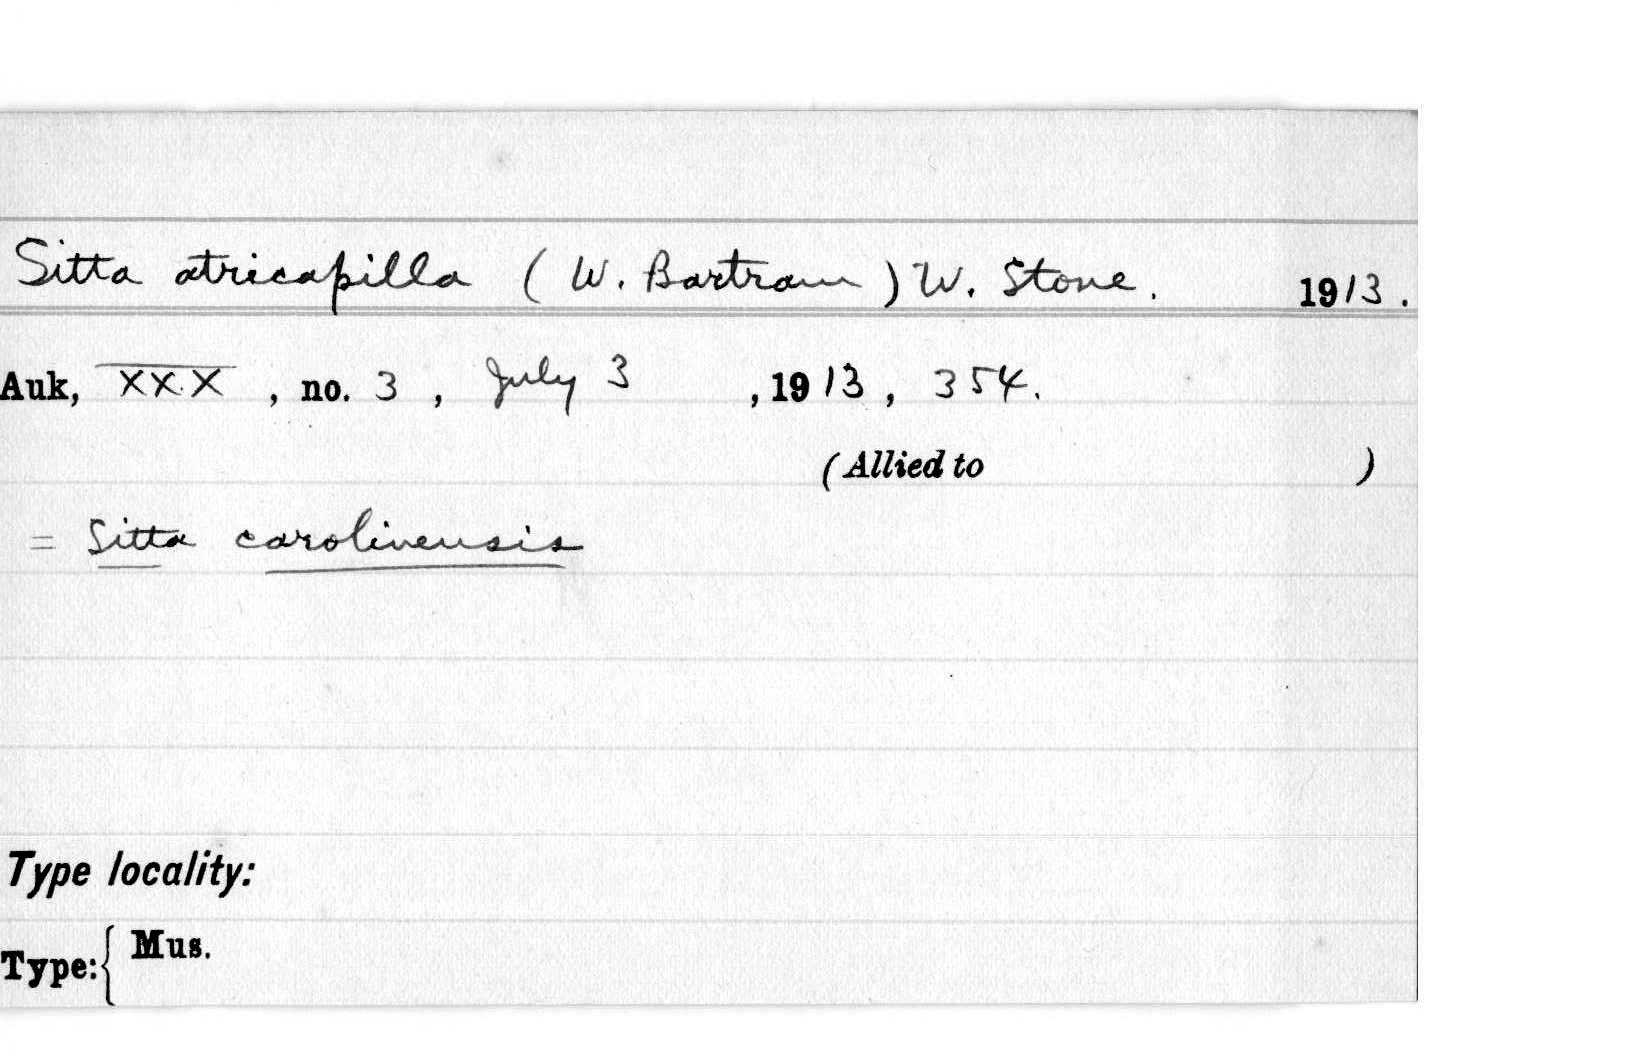 Sitta atricapilla (W. Bartram) W. Stone. 1913.
Auk, XXX, no. 3, July 3, 1913, 354.
(Allied to )
= Sitta carolinensis
Type locality:
Type: { Mus.